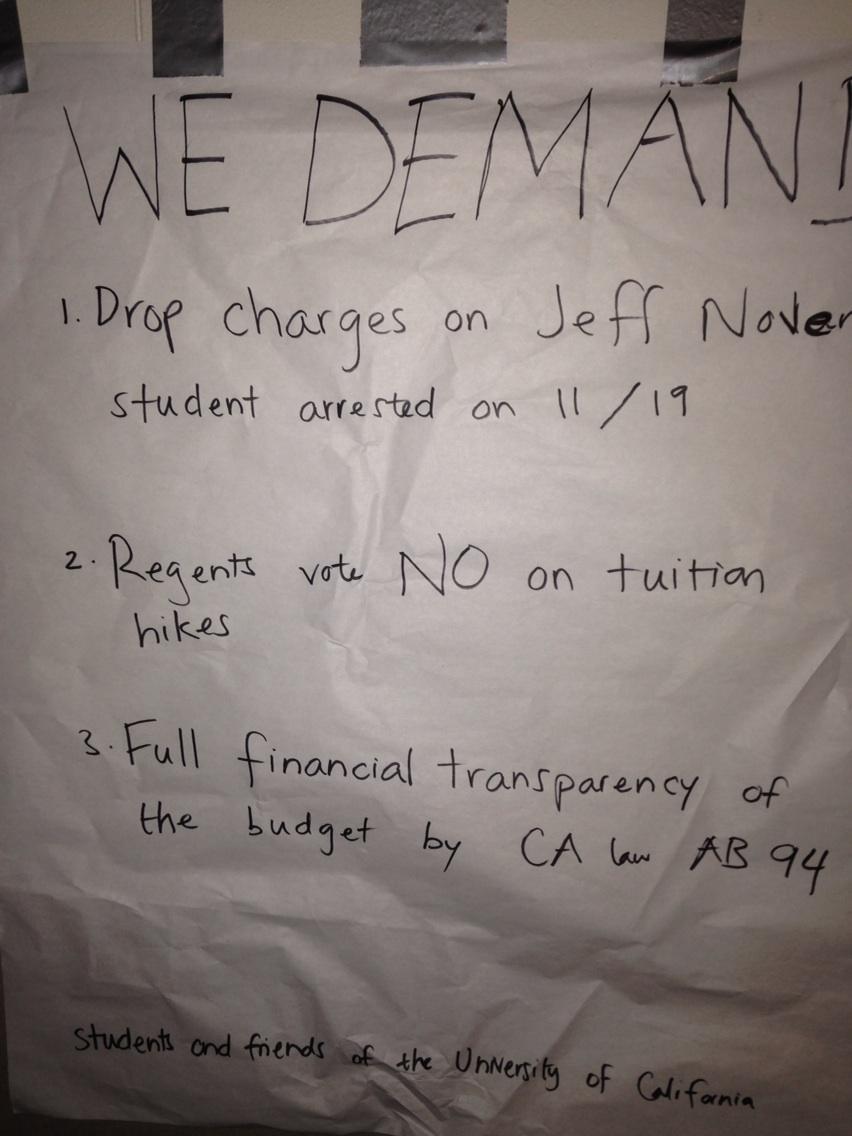 WE DEMAND
1. Drop charges on Jeff Noven
student arrested on 11/19
2. Regents vote NO on tuition
hikes
3. Full financial transparency of
the budget by CA law AB 94
Students and friends of the University of California